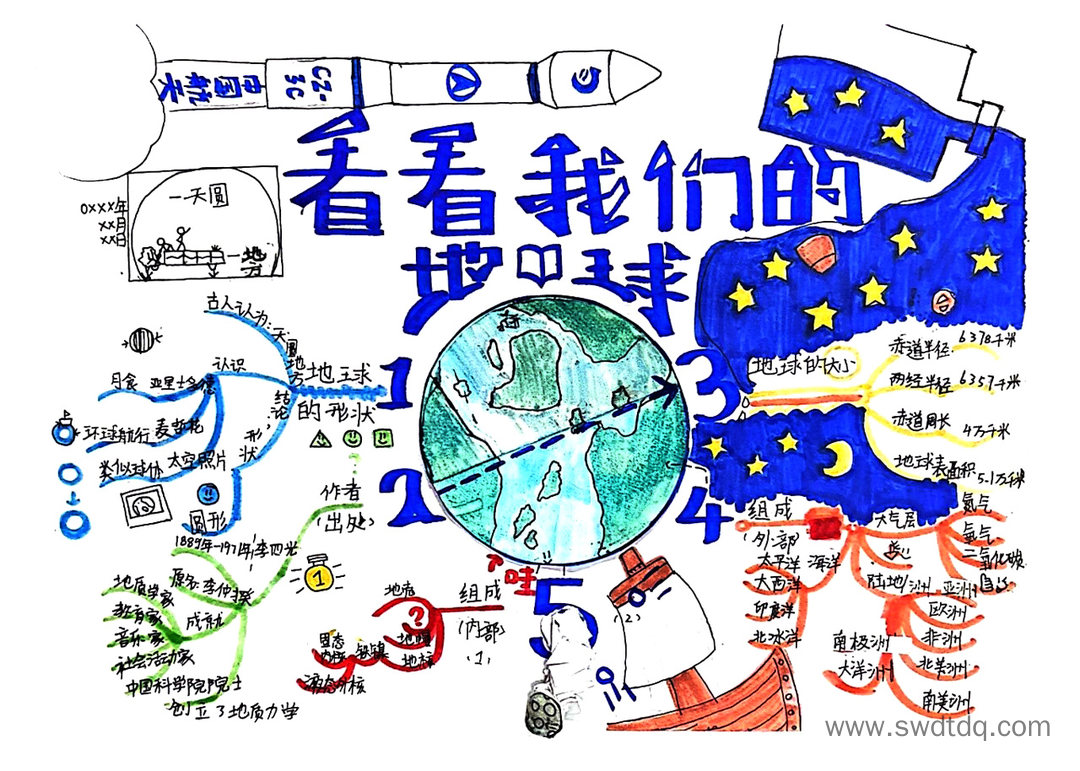 中国航天
CZ-
3C
看看我们的
地球
0XXX年
XX月
XX日
一天圆
一地方
1
地球
的形状
古人认为:天圆地方
认识
月食
亚里士多德
环球航行
麦哲伦
类似球体
太空照片
结论
形状
圆形
2
作者
(出处)
1889年-1971年
李四光
原名
李仲揆
成就
地质学家
教育家
音乐家
社会活动家
中国科学院院士
创立了地质力学
1
3
地球的大小
赤道半径
6378千米
两经半径
6357千米
赤道周长
4万千米
地球表面积
5.1万千米
4
组成
(外部)
大气层
氮气
氧气
二氧化碳
海洋
太平洋
大西洋
印度洋
北冰洋
陆地
洲
亚洲
欧洲
非洲
北美洲
南美洲
南极洲
大洋洲
5
哇
组成
(内部)
1
地壳
?
地幔
地核
铁镍
固态
内核
液态外核
(2)
www.swdtdq.com